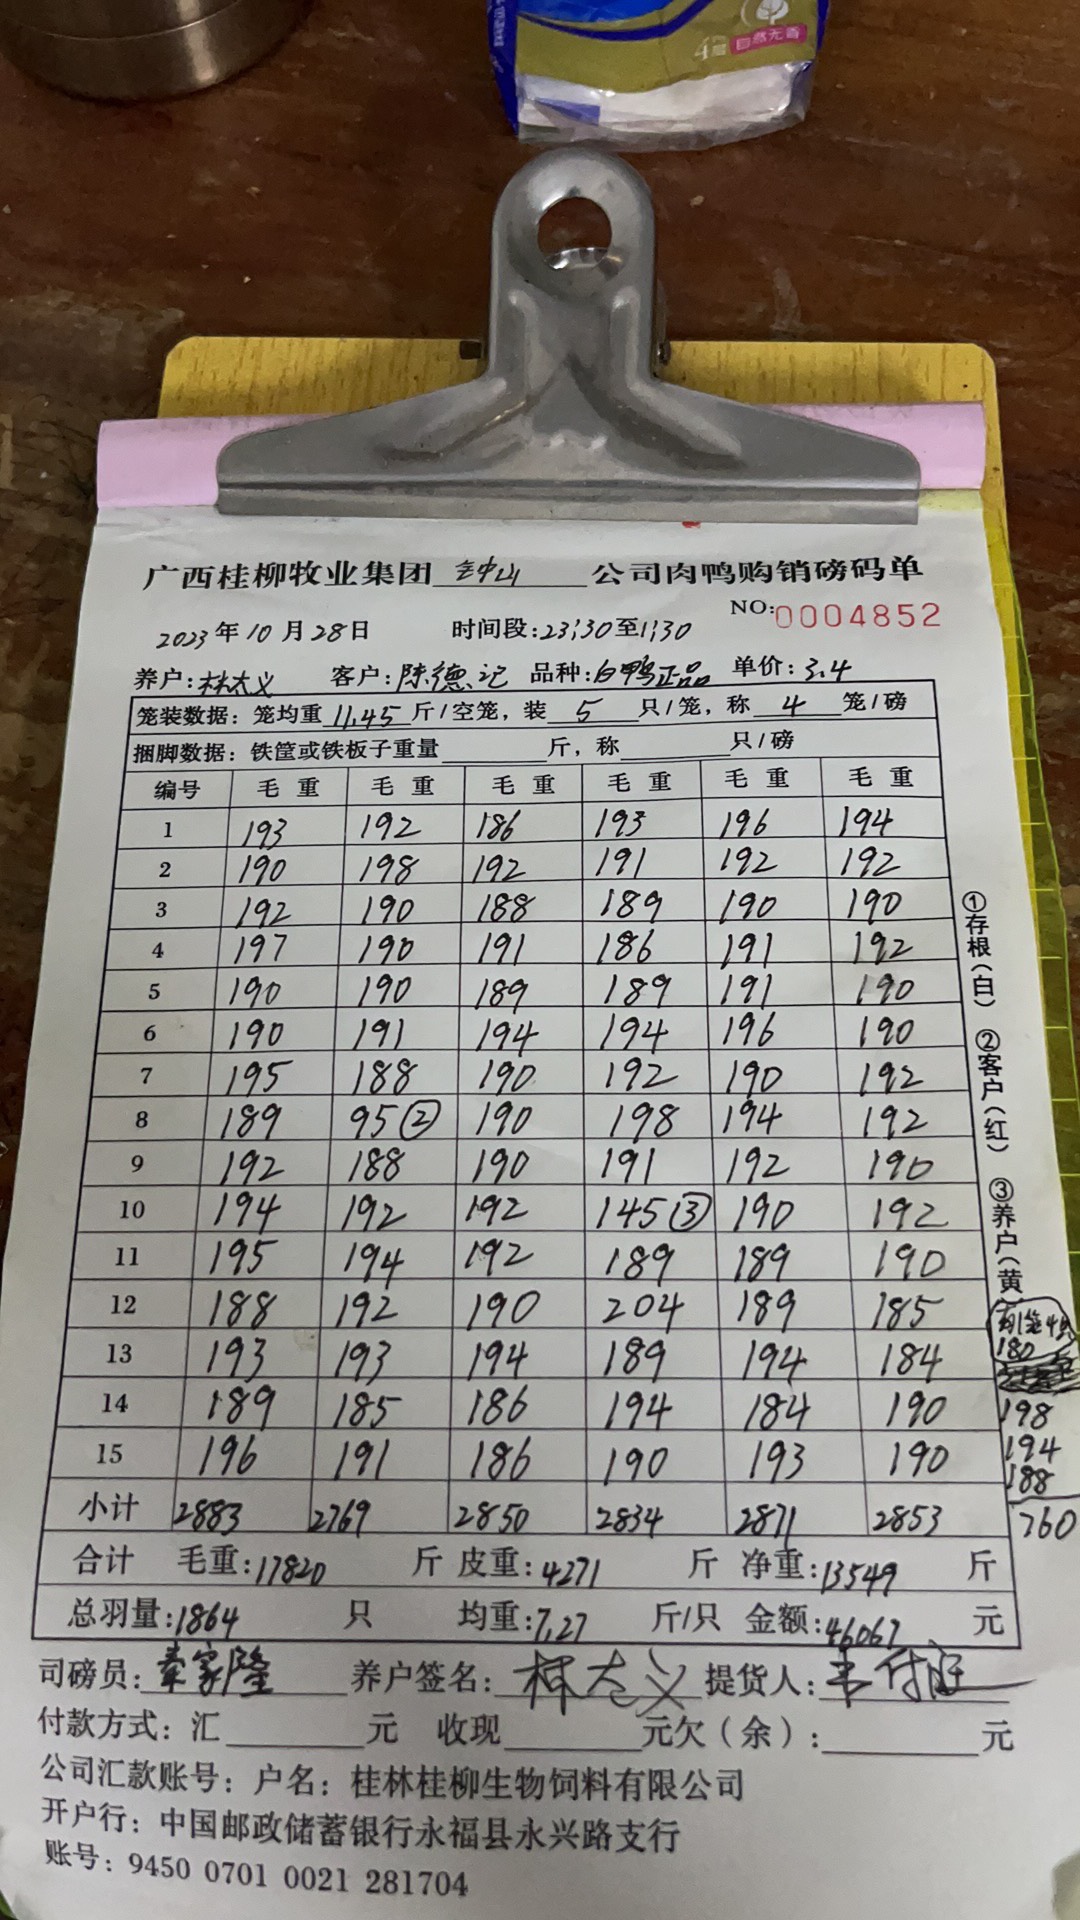 4层 自然无香
广西桂柳牧业集团 钟山 公司肉鸭购销磅码单
NO:0004852
2023年10月28日 时间段:23:30至1:30
养户:林太义 客户:陈德记 品种:白鸭正品 单价:3.4
笼装数据:笼均重 11.45 斤/空笼,装 5 只/笼,称 4 笼/磅
捆脚数据:铁筐或铁板子重量 斤,称 只/磅
编号 毛重 毛重 毛重 毛重 毛重 毛重
1 193 192 186 193 196 194
2 190 198 192 191 192 192
3 192 190 188 189 190 190
4 197 190 191 186 191 192
5 190 190 189 189 191 190
6 190 191 194 194 196 190
7 195 188 190 192 190 192
8 189 95② 190 198 194 192
9 192 188 190 191 192 190
10 194 192 192 145③ 190 192
11 195 194 192 189 189 190
12 188 192 190 204 189 185
13 193 193 194 189 194 184
14 189 185 186 194 184 190
15 196 191 186 190 193 190
小计 2883 2769 2850 2834 2871 2853
合计 毛重:17820 斤 皮重:4271 斤 净重:13549 斤
总羽量:1864 只 均重:7.27 斤/只 金额:46067 元
司磅员: 家隆 养户签名:林太义 提货人:
付款方式:汇 元 收现 元欠(余): 元
公司汇款账号:户名:桂林桂柳生物饲料有限公司
开户行:中国邮政储蓄银行永福县永兴路支行
账号:9450 0701 0021 281704
①存根(白) ②客户(红) ③养户(黄)
180
198
194
188
760